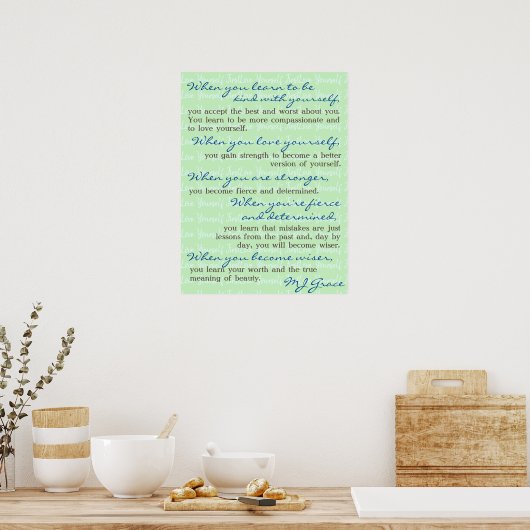 When you learn to be
kind with yourself,
you accept the best and worst about you.
You learn to be more compassionate and
to love yourself.
When you love yourself,
you gain strength to become a better
version of yourself.
When you are stronger,
you become fierce and determined.
When you're fierce
and determined,
you learn that mistakes are just
lessons from the past and, day by
day, you will become wiser.
When you become wiser,
you learn your worth and the true
meaning of beauty.
MJ Grace